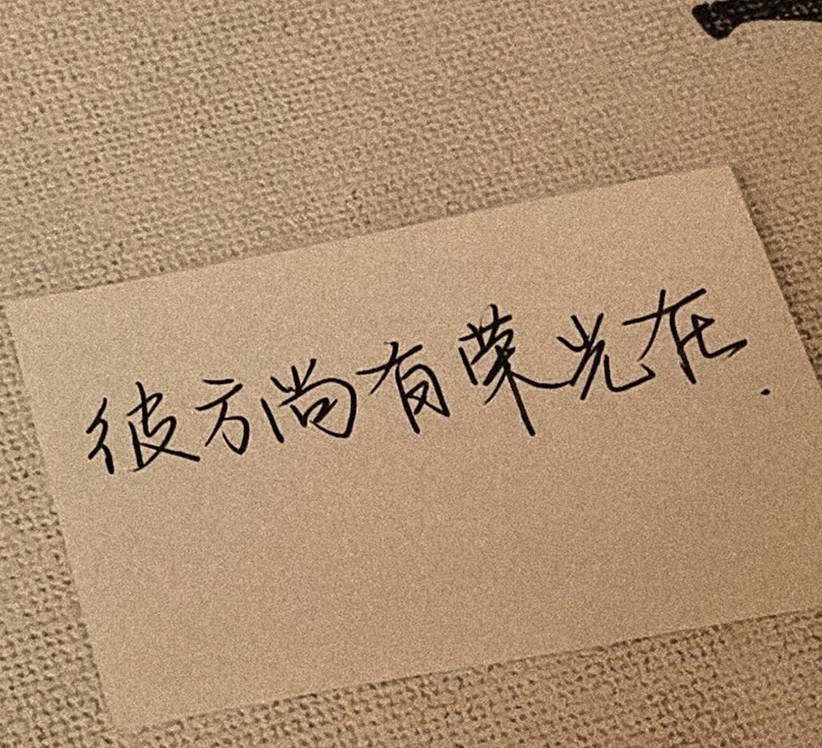 彼方尚有荣光在.